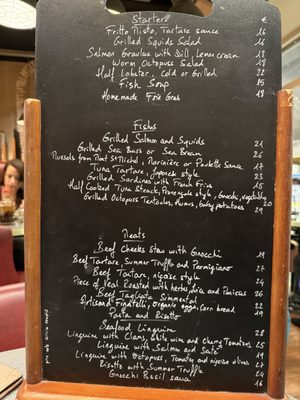 Starters €
Fritto Misto, Tartare sauce 16
Grilled Squids Salad 16
Salmon Gravlax with Dill, Lemon cream 18
Warm Octopus Salad 19
Half Lobster, Cold or Grilled 22
Fish Soup 15
Homemade Foie Gras 18
Fishs
Grilled Salmon and Squids 21
Grilled Sea Bass or Sea Bream 26
Mussels from Mont St Michel, Marinière or Poulette Sauce 17
Tuna Tartare, Japanese style 23
Grilled Sardines with French Fries 15
Half Cooked Tuna Steack, Provençale style, Gnocchi, vegetables 25
Grilled Octopus Tentacles, Humus, baby potatoes 29
Meats
Beef Cheeks stew with Gnocchi 19
Beef Tartare, Summer Truffle and Parmigiano 27
Beef Tartare, niçoise style 24
Piece of Veal Roasted with herbs, and Panisses 26
Beef Tagliata Simmental 22
Artisanal organic eggs, corn bread 19
Pasta and Risotto
Seafood Linguine 28
Linguine with Clams, white wine and cherry Tomatoes 25
Linguine with Salmon and 19
Linguine with Octopus, Tomatoes and niçoise olives 27
Risotto with Summer Truffle 24
Gnocchi Basil sauce 16